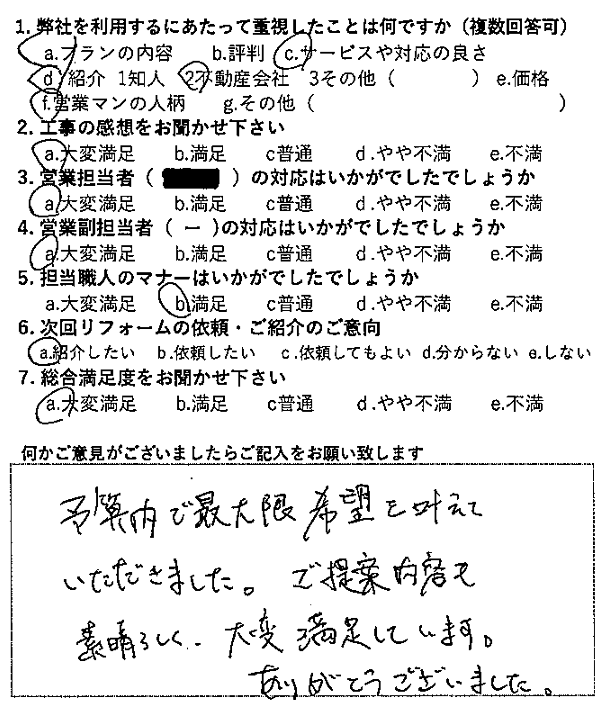 1. 弊社を利用するにあたって重視したことは何ですか（複数回答可）
a.プランの内容 b.評判 c.サービスや対応の良さ
d 紹介 1知人 2不動産会社 3その他（ ） e.価格
f.営業マンの人柄 g.その他（ ）
2. 工事の感想をお聞かせ下さい
a.大変満足 b.満足 c普通 d.やや不満 e.不満
3. 営業担当者（ ）の対応はいかがでしたでしょうか
a.大変満足 b.満足 c普通 d.やや不満 e.不満
4. 営業副担当者（ ー ）の対応はいかがでしたでしょうか
a.大変満足 b.満足 c普通 d.やや不満 e.不満
5. 担当職人のマナーはいかがでしたでしょうか
a.大変満足 b.満足 c普通 d.やや不満 e.不満
6. 次回リフォームの依頼・ご紹介のご意向
a.紹介したい b.依頼したい c.依頼してもよい d.分からない e.しない
7. 総合満足度をお聞かせ下さい
a.大変満足 b.満足 c普通 d.やや不満 e.不満
何かご意見がございましたらご記入をお願い致します
予算内で最大限希望を叶えて
いただきました。ご提案内容も
素晴らしく、大変満足しています。
ありがとうございました。